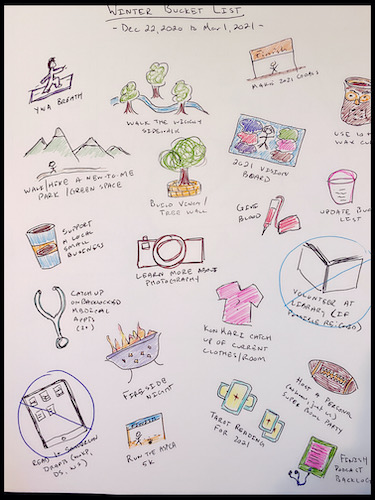 WINTER BUCKET LIST
- DEC 22, 2020 to MAR 1, 2021 -
YWA BREATH
WALK THE WIGGLY
SIDEWALK
FINISH
MARIO 2021 COURSE
USE UP
WAX CU
WALK/HIKE A NEW-TO-ME
PARK/GREEN SPACE
BUILD
TREE WALL
2021 VISION
BOARD
UPDATE
LIST
SUPPORT
A LOCAL
SMALL
BUSINESS
LEARN MORE ABOUT
PHOTOGRAPHY
GIVE
BLOOD
VOLUNTEER AT
LIBRARY (IF
POSSIBLE
CATCH UP
ON BACKLOGGED
MEDICAL
APPTS
(2+)
FIRESIDE
NIGHT
KONMARI CATCH
UP OF CURRENT
CLOTHES/ROOM
HOST A PERSONAL
SUPER BOWL PARTY
READ
DRAFTS
FINISH
RUN THE ASPCA
5K
TAROT READING
FOR 2021
FINISH
PODCAST
BACKLOG